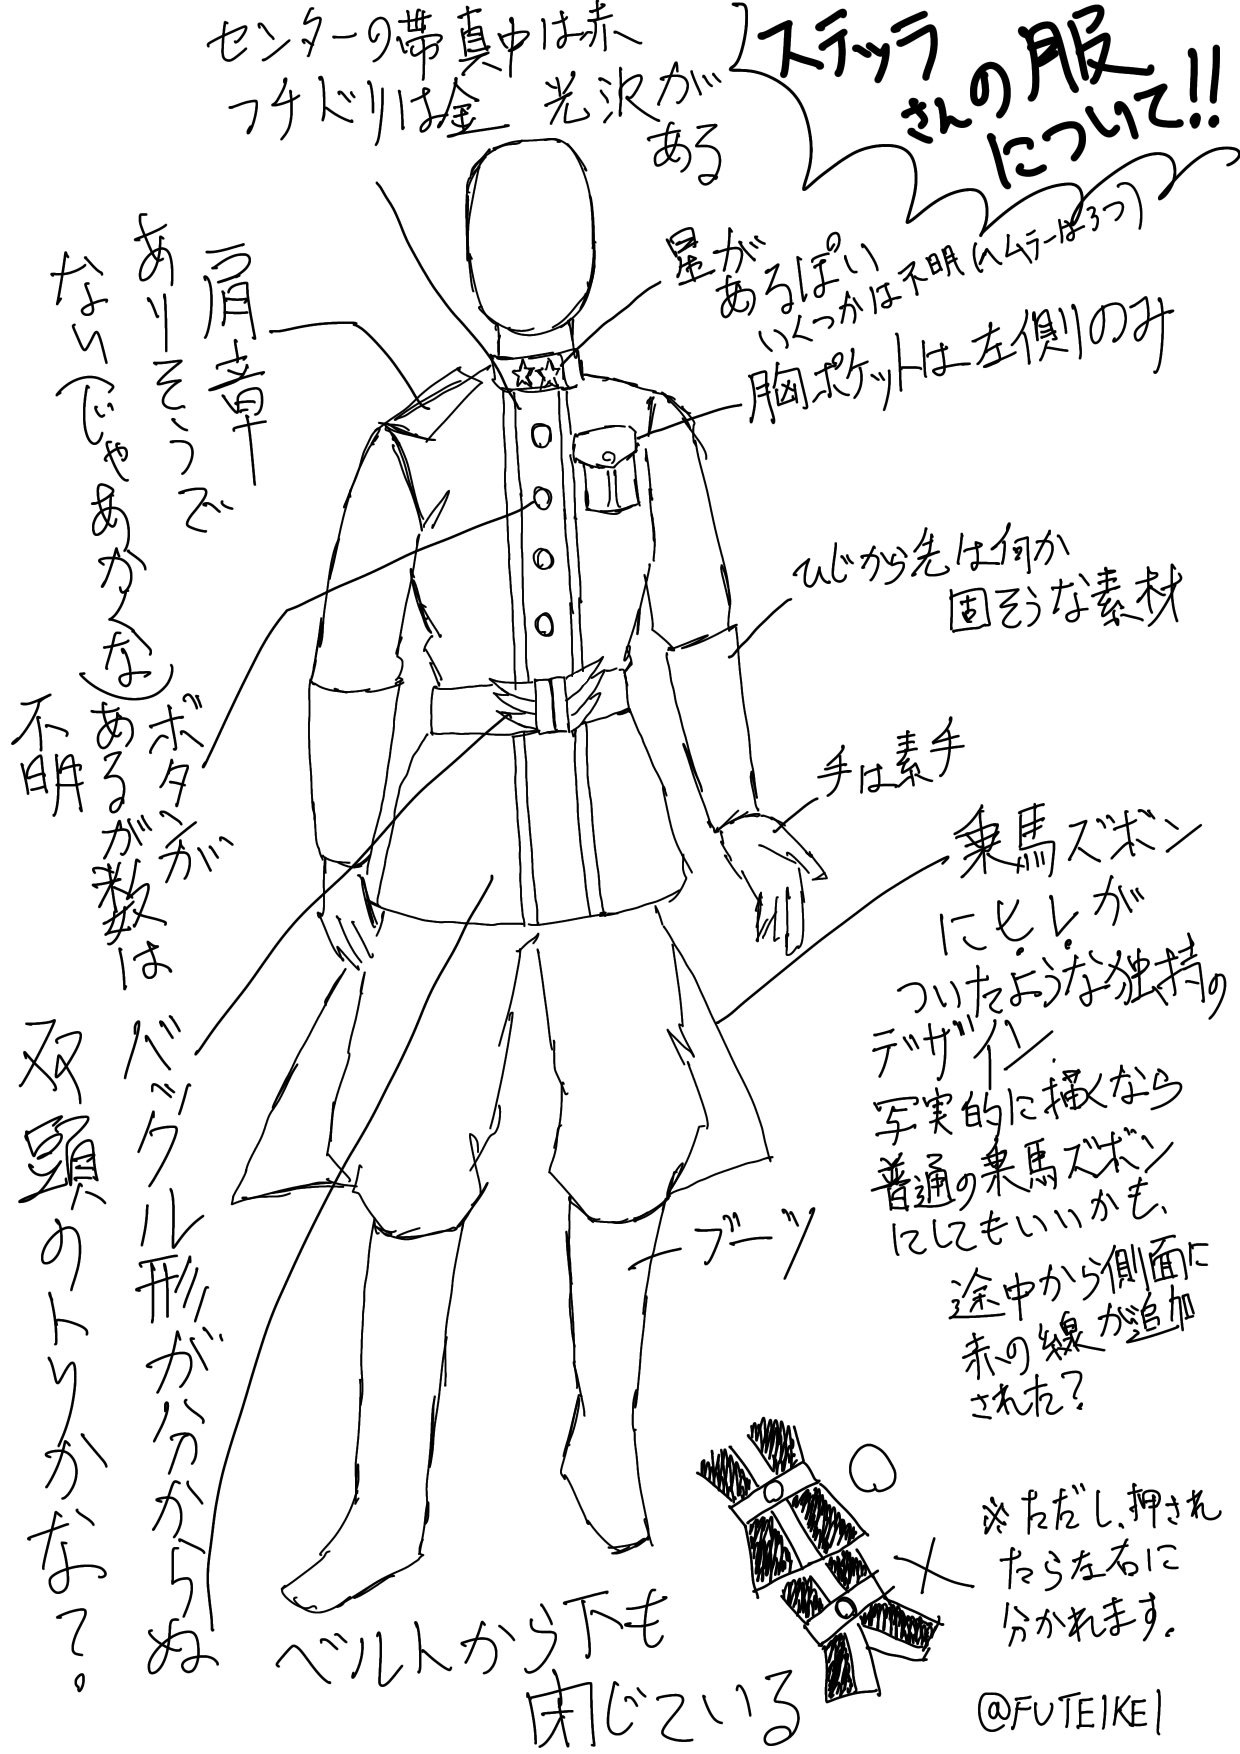 ステッラ
さんの服
について!!
センターの帯真中は赤
フチドリは金 光沢が
ある
星が
あるぽい
いくつかは不明(ヘムラーは3つ)
胸ポケットは左側のみ
肩章
ありそうで
ないでじゃあかくな
ひじから先は何か
固そうな素材
ボタンが
あるが数は
不明
手は素手
乗馬ズボン
にヒレが
ついたような独特の
デザイン
写実的に描くなら
普通の乗馬ズボン
にしてもいいかも、
途中から側面に
赤の線が追加
された?
バックル形が分からぬ
双頭のトリかな?
ブーツ
ベルトから下も
閉じている
※ただし、押され
たら左右に
分かれます。
@FUTEIKEI